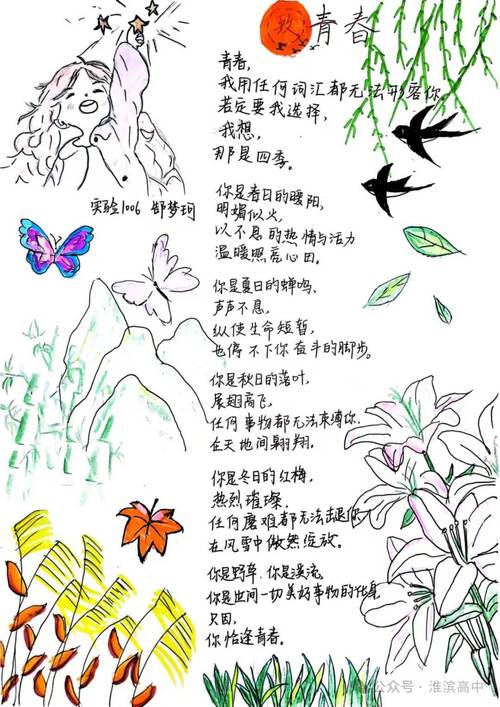 致青春
青春,
我用任何词汇都无法形容你
若定要我选择,
我想,
那是四季。
实验1006 郜梦珂
你是春日的暖阳,
明媚似火,
以不息的热情与活力
温暖照亮心田。
你是夏日的蝉鸣、
声声不息,
纵使生命短暂,
也停不下你奋斗的脚步。
你是秋日的落叶,
展翅高飞,
任何事物都无法束缚你.
在天地间翱翔,
你是冬日的红梅,
热烈璀璨,
任何磨难都无法击退你
在风雪中傲然绽放。
你是野草.你是溪流,
你是世间一切美好事物的化身
只因,
你恰逢青春。
公众号·淮滨高中